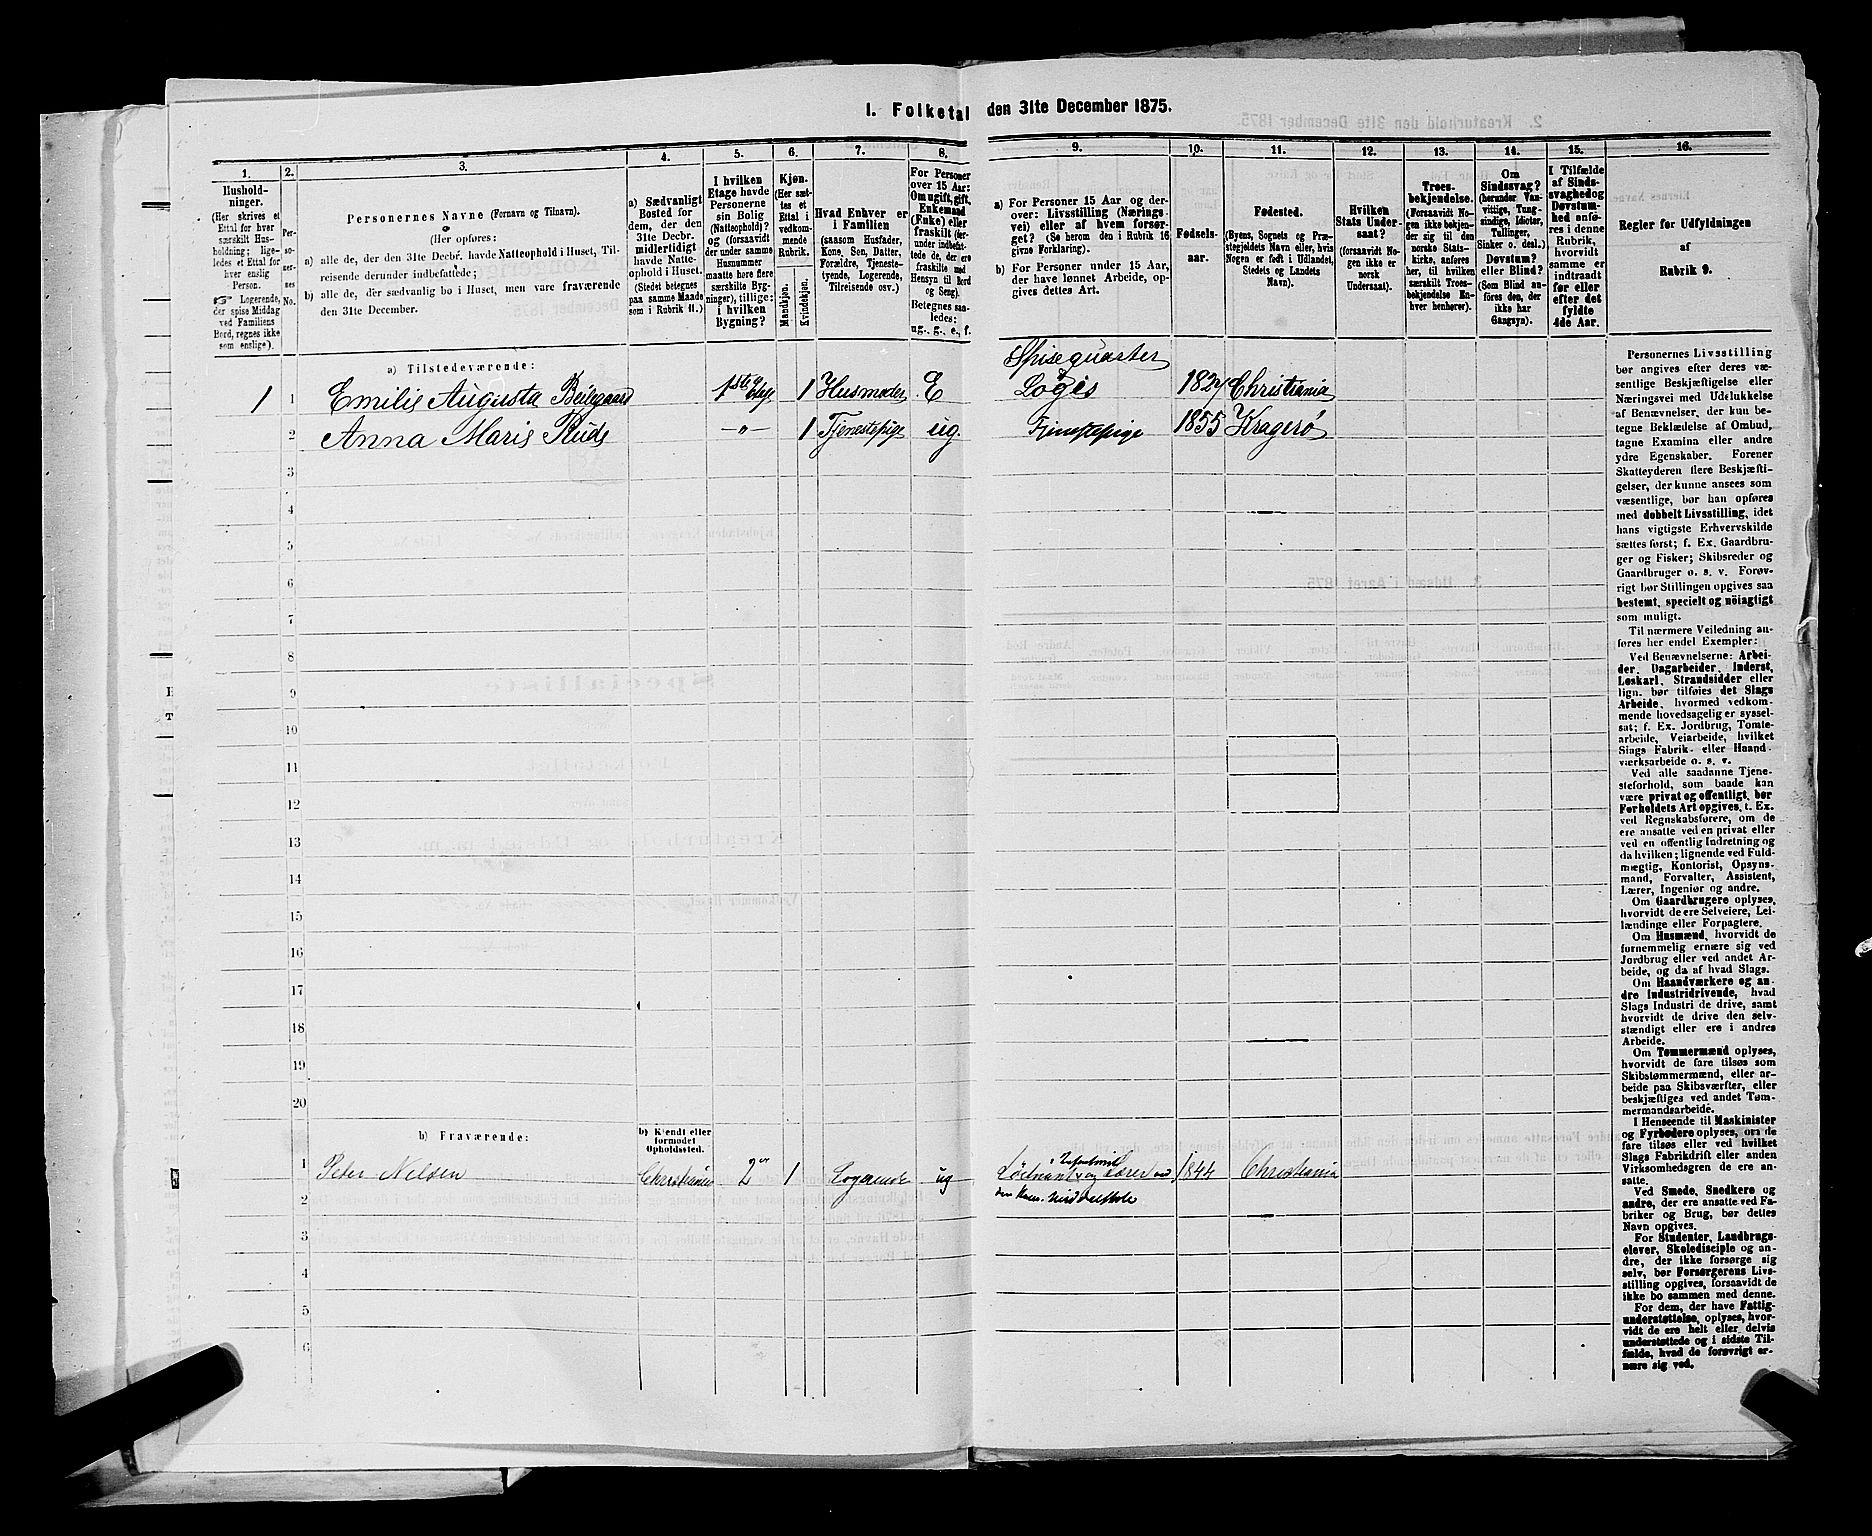 I. Folketal den 31te December 1875.
1.
2.
3.
4.
5.
6.
7.
8.
9.
10.
11.
12.
13.
14.
15.
16.
Hushold-
ninger.
(Her skrives et
Ettal for hver
særskilt Hus-
holdning; lige-
ledes et Ettal for
hver enslig
Person.
☞ Logerende,
der spise Middag
ved Familiens
Bord, regnes ikke
som enslige).
Per-
so-
ner-
nes
No.
Personernes Navne (Fornavn og Tilnavn).
(Her opføres:
a) alle de, der den 31te Decbr. havde Natteophold i Huset, Til-
reisende derunder indbefattede;
b) alle de, der sædvanlig bo i Huset, men vare fraværende
den 31te December.
a) Sædvanligt
Bosted for
dem, der den
31te Decbr.
midlertidigt
havde Natte-
ophold i Huset.
(Stedet betegnes
paa samme Maade
som i Rubrik 11.)
I hvilken
Etage havde
Personerne
sin Bolig
(Natteophold)?
og (forsaavidt
der under samme
Husnummer
maatte høre flere
særskilte Byg-
ninger), tillige:
i hvilken
Bygning?
Kjøn.
(Her sæt-
tes et
Ettal i
vedkom-
mende
Rubrik.
Mandkjøn.
Kvindekjøn.
Hvad Enhver er
i Familien
(saasom Husfader,
Kone, Søn, Datter,
Forældre, Tjeneste-
tyende, Logerende,
Tilreisende osv.)
For Personer
over 15 Aar:
Om ugift, gift,
Enkemand
(Enke) eller
fraskilt (der-
under indbefat-
tede de, der ere
fraskilte med
Hensyn til Bord
og Seng).
Betegnes saa-
ledes:
ug., g., e., f.
a) For Personer 15 Aar og der-
over: Livsstilling (Nærings-
vei) eller af hvem forsør-
get? (Se herom den i Rubrik 16
givne Forklaring).
b) For Personer under 15 Aar,
der have lønnet Arbeide, op-
gives dettes Art.
Fødsels-
aar.
Fødested.
(Byens, Sognets og Præ-
stegjeldets Navn eller, hvis
Nogen er født i Udlandet,
Stedets og Landets
Navn).
Hvilken
Stats Under-
saat?
(forsaavidt No-
gen ikke er
norsk
Undersaat).
Troes-
bekjendelse.
(Forsaavidt No-
gen ikke bekjen-
der sig til den
norske Stats-
kirke, anføres
her, til hvilken
særskilt Troes-
bekjendelse En-
hver henhører).
Om
Sindssvag?
(herunder Van-
vittige, Tung-
sindige, Idioter,
Sinker o. desl.)
Døvstum?
eller Blind?
(Som Blind an-
føres den, der
ikke har
Gangsyn).
I Tilfælde
af Sinds-
svaghed og
Døvstum-
hed anfø-
res i denne
Rubrik,
hvorvidt
samme er
indtraadt
før eller
efter det
fyldte
4de Aar.
Regler for Udfyldningen
af
Rubrik 9.
a) Tilstedeværende:
Spisequarter
&
1 1 Emilie Augusta Beilegaard 1ste Etage 1 Husmoder E Logis 1827 Christiania
2 Anna Marie Ruds -"- 1 Tjenestepige ug. Tjenestepige 1855 Kragerø
3
4
5
6
7
8
9
10
11
12
13
14
15
16
17
18
19
20
b) Fraværende:
b) Kjendt eller
formodet
Opholdssted.
1 Peter Nielsen Christiania 2den 1 Logerende ug Løitnant og Lærer ved 1844 Christiania
Middelskole
2
3
4
5
6
Personernes Livsstilling
bør angives efter deres væ-
sentlige Beskjæftigelse eller
Næringsvei med Udelukkelse
af Benævnelser, der kun be-
tegne Beklædelse af Ombud,
tagne Examina eller andre
ydre Egenskaber. Forener
Skatteyderen flere Beskjæfti-
gelser, der kunne ansees som
væsentlige, bør han opføres
med dobbelt Livsstilling, idet
hans vigtigste Erhvervskilde
sættes først; f. Ex. Gaardbru-
ger og Fisker; Skibsreder og
Gaardbruger o. s. v. Forøv-
rigt bør Stillingen opgives saa
bestemt, specielt og nøiagtigt
som muligt.
Til nærmere Veiledning an-
føres her endel Exempler:
Ved Benævnelserne: Arbei-
der, Dagarbeider, Inderst,
Løskarl, Strandsidder eller
lign. bør tilføies det Slags
Arbeide, hvormed vedkom-
mende hovedsagelig er syssel-
sat; f. Ex. Jordbrug, Tomte-
arbeide, Veiarbeide, hvilket
Slags Fabrik- eller Haand-
værksarbeide o. s. v.
Ved alle saadanne Tjene-
steforhold, som baade kan
være privat og offentligt, bør
Forholdets Art opgives, t. Ex.
ved Regnskabsførere, om de
ere ansatte ved en privat eller
ved en offentlig Indretning og
da hvilken; lignende ved Fuld-
mægtig, Kontorist, Opsyns-
mand, Forvalter, Assistent,
Lærer, Ingeniør og andre.
Om Gaardbrugere oplyses,
hvorvidt de ere Selveiere, Lei-
lændinge eller Forpagtere.
Om Husmænd, hvorvidt de
fornemmelig ernære sig ved
Jordbrug eller ved andet Ar-
beide, og da af hvad Slags.
Om Haandværkere og an-
dre Industridrivende, hvad
Slags Industri de drive, samt
hvorvidt de drive den selv-
stændigt eller ere i andres
Arbeide.
Om Tømmermænd oplyses,
hvorvidt de fare tilsøs som
Skibstømmermænd, eller ar-
beide paa Skibsværfter, eller
beskjæftiges ved andet Tøm-
mermandsarbeide.
I Henseende til Maskinister
og Fyrbødere oplyses, om de
fare tilsøs eller ved hvilket
Slags Fabrikdrift eller anden
Virksomhedsgren de ere an-
satte.
Ved Smede, Snedkere og
andre, der ere ansatte ved Fa-
briker og Brug, bør dettes
Navn opgives.
For Studenter, Landbrugs-
elever, Skoledisciple og an-
dre, der ikke forsørge sig
selv, bør Forsørgerens Livs-
stilling opgives, forsaavidt de
ikke bo sammen med denne.
For dem, der have Fattig-
understøttelse, oplyses, hvor-
vidt de ere helt eller delvis
understøttede og i sidste Til-
fælde, hvad de forøvrigt er-
nære sig ved.